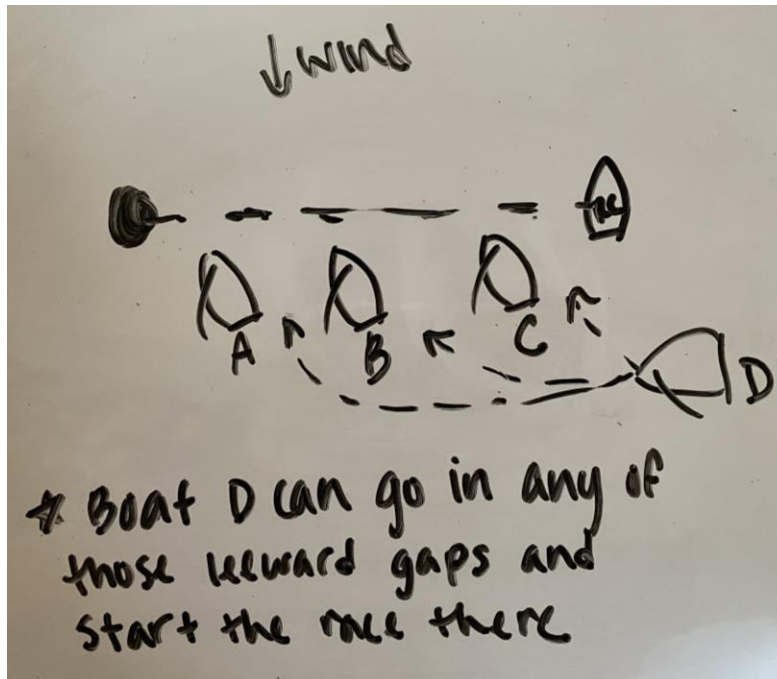 ↓ wind
RC
A
B
C
D
* Boat D can go in any of
those leeward gaps and
start the race there